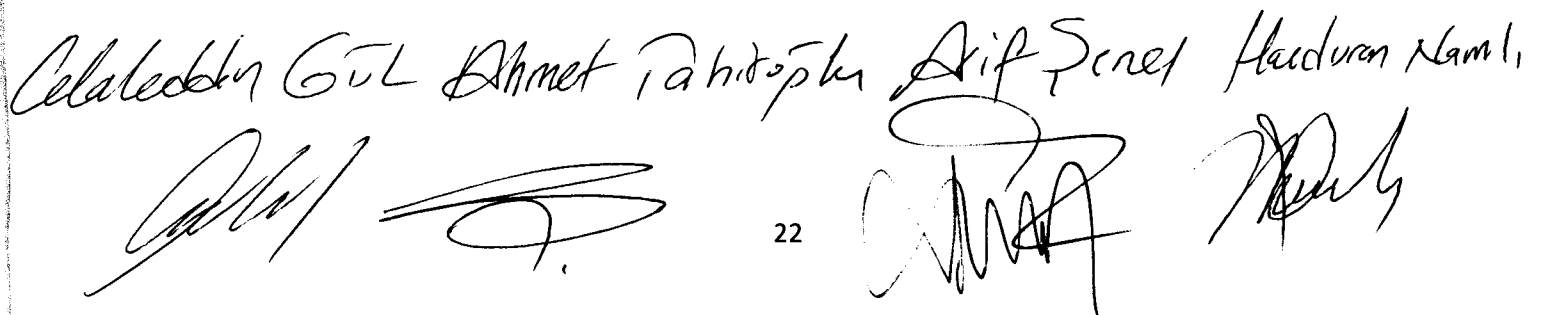 Celaleddin GÜL Ahmet Tahiroğlu Arif Şenel Namlı
22